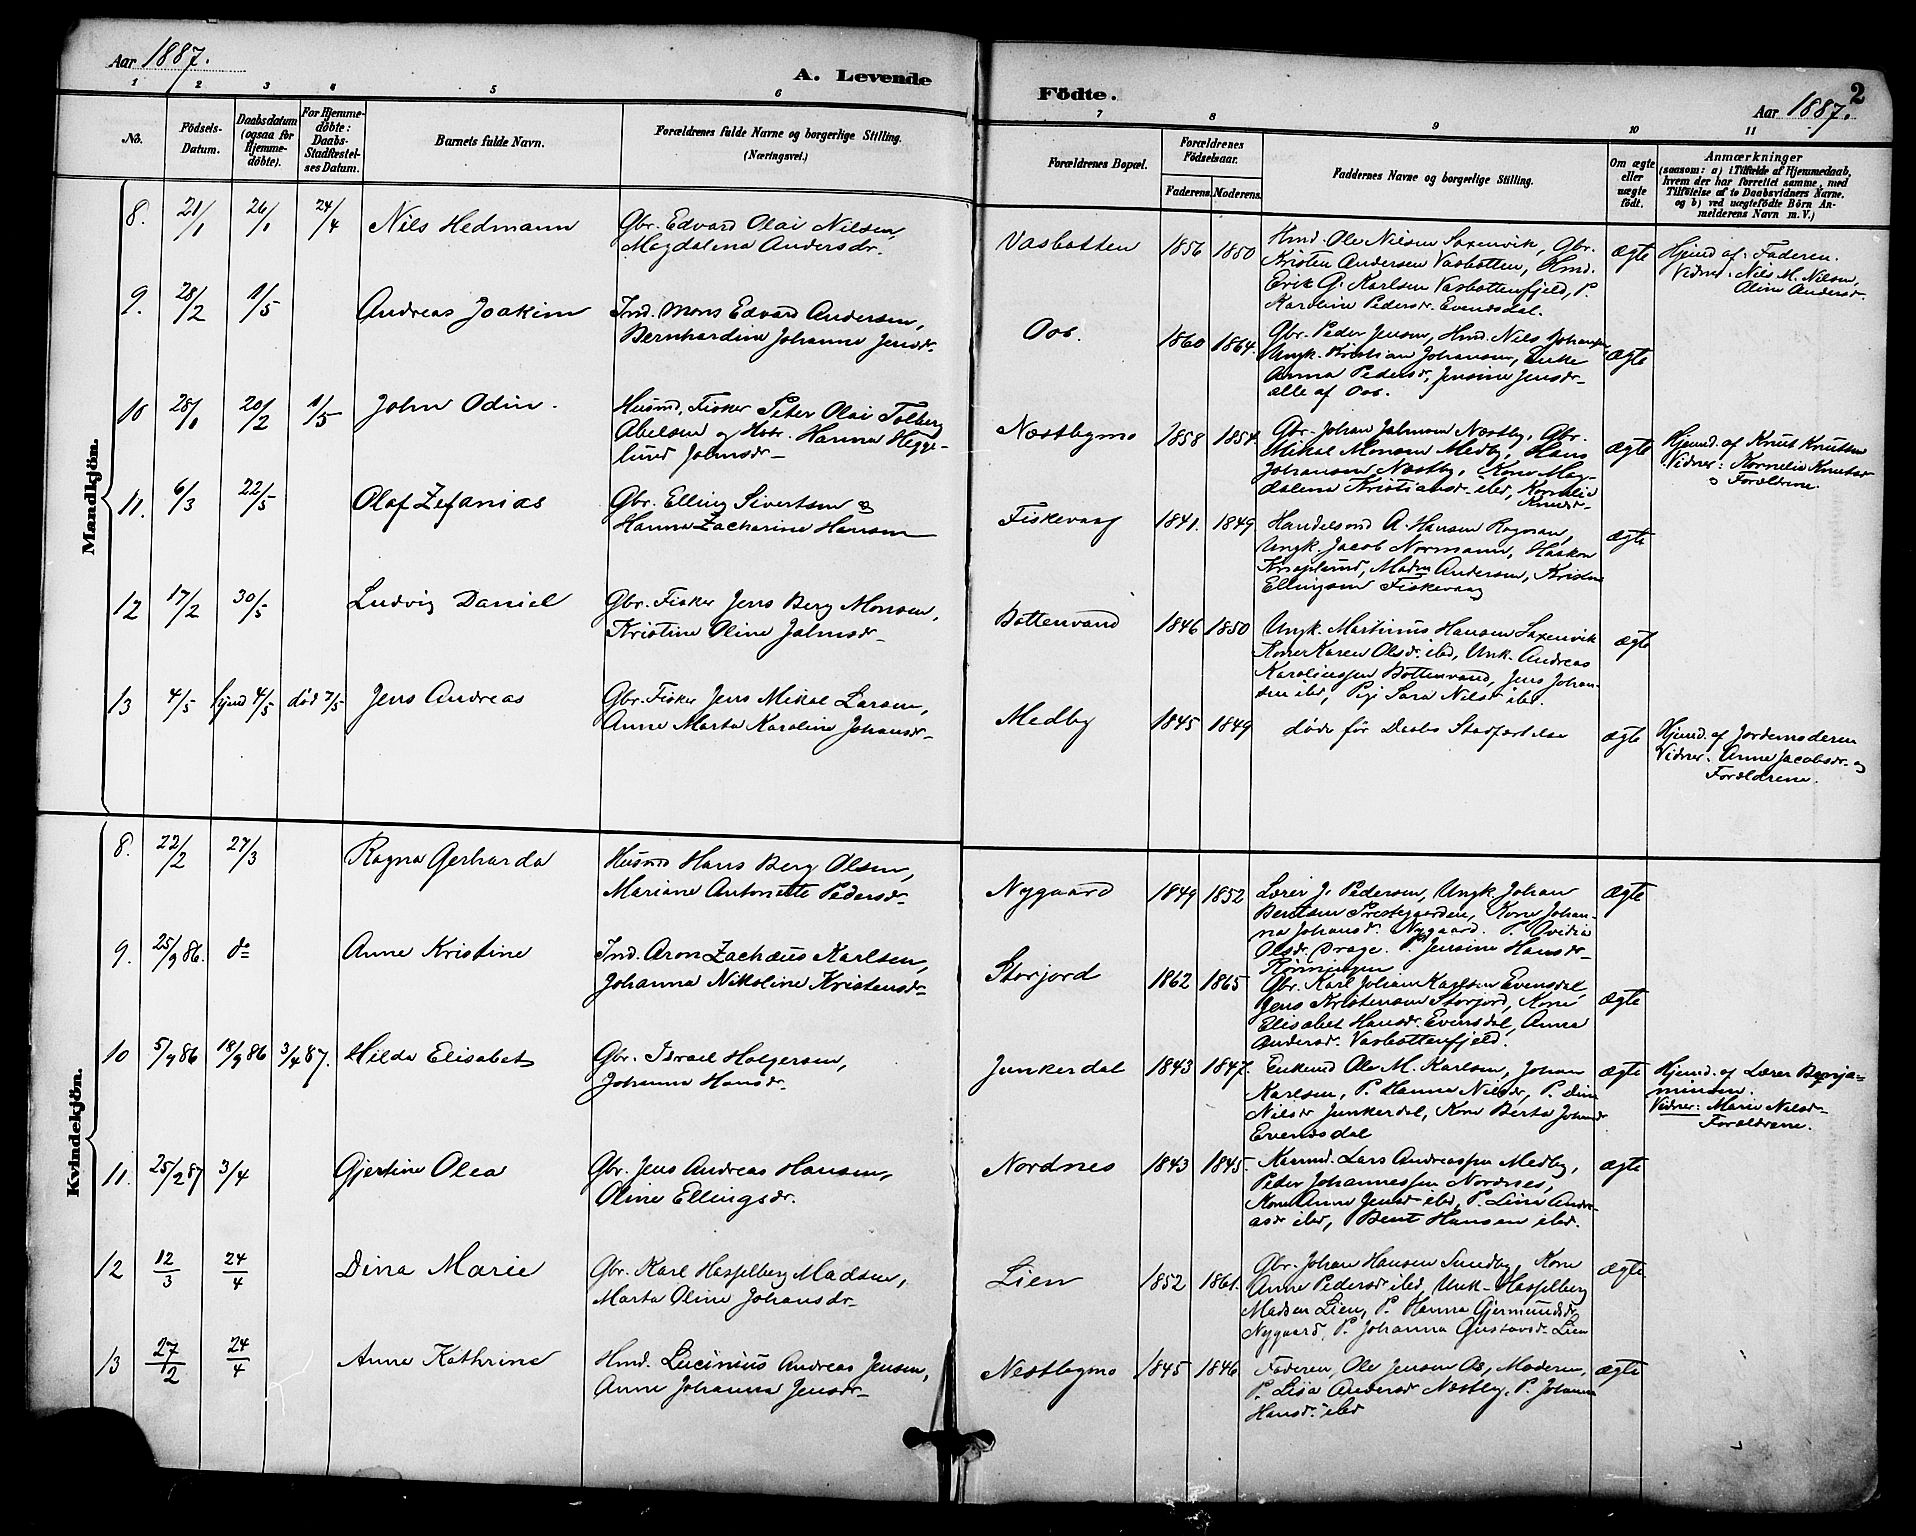 Aar 1887.
A. Levende
Födte.
2
Aar 1887.
1 2 3 4 5 6 7 8 9 10 11
No.
Födsels-
Datum.
Daabsdatum
(ogsaa for
Hjemme-
döbte).
For Hjemme-
döbte:
Daabs-
Stadfæstel-
ses Datum.
Barnets fulde Navn.
Forældrenes fulde Navne og borgerlige Stilling.
(Næringsvei.)
Forældrenes Bopæl.
Forældrenes
Födselsaar.
Faderens. Moderens.
Faddernes Navne og borgerlige Stilling.
Om ægte
eller
uægte
födt.
Anmærkninger
(saasom: a) i Tilfælde af Hjemmedaab,
hvem der har forrettet samme, med
Tilföielse af to Daabsvidners Navne.
og b) ved uægtefödte Börn An-
melderens Navn m. V.)
Mandkjön.
8. 21/1 26/1 24/4 Nils Hedmann
Gbr. Edvard Olai Nilsen,
Magdalena Andersdr.
Vasbotten 1856 1850
Hmd. Ole Nilsen Saxenvik, Gbr.
Kristen Andersen Vasbotten, Hmd.
Erik A. Karlsen Vasbottenfjeld, P.
Karoline Pedersdr. Evensdal.
ægte
Hjemd af Faderen.
Vidner: Nils M. Nilsen,
Oline Andersdr.
9. 28/2 1/5 Andreas Joakim
Ind. Mons Edvard Andersen,
Bernhardine Johanna Jensdr.
Oos. 1860 1864.
Gbr. Peder Jensen, Hmd. Nils Johansen
Ungk. Kristian Johansen, Enke
Anna Pedersdr, Jensine Jensdr.
alle af Oos.
ægte
10 28/1 20/2 1/5 John Odin.
Husmd. Fisker Peter Olai Tolberg
Abelsen og Hstr. Hanna Hegge-
lund Jolmsdr.
Næstbymo 1858 1854.
Gbr. Johan Jolmsen Næstby, Gbr.
Mikal Monsen Medby, Hans
Johansen Næstby, Kone Mag-
dalena Kristiansdr. ibd, Kornelia
Knudsdr.
ægte
Hjemd. af Knut Knutsen
Vidner: Kornelia Knutsdr
o Forældrene.
11. 6/3 22/5 Olaf Zefanias
Gbr. Elling Sivertsen og
Hanna Zacharine Hansen
Fiskevaag 1841. 1849
Handelsmd A. Hansen Rognan,
Ungk. Jacob Normann, Haakon
Knaplund, Madm Andersen, Kristine
Ellingsen Fiskevaag
ægte
12 17/2 30/5 Ludvig Daniel
Gbr. Fisker Jens Berg Monsen,
Kristine Oline Jolmsdr.
Bottenvand 1846 1850
Ungk. Martinus Hansen Saxenvik
Kone Karen Olsdr. ibd, Unk. Andreas
Karoliussen Bottenvand, Jens Johan-
sen ibd, Pige Sara Nilsdr ibd.
ægte
13 4/5 hjmd 4/5 död 7/5 Jens Andreas
Gbr. Fisker Jens Mikal Larsen,
Anne Marta Karoline Johansdr.
Medby 1845 1849
döde för Daabs Stadfæstelse
ægte
Hjemd. af Jordemoderen
Vidner. Anne Jacobsdr. og
Forældrene.
Kvindekjön.
8. 22/2 27/3 Ragna Gerharda
Husmd Hans Berg Olsen,
Mariane Antonette Pedersdr.
Nygaard 1849 1852
Lærer J. Pedersen, Ungk Johan
Bentsen Prestegaarden, Kone Johan-
na Johansdr. Nygaard. P. Ovidia
Olsdr. Drage. P. Jensine Hansdr.
ægte
9. 25/9 86. do Anne Kristine
Ind. Aron Zachæus Karlsen,
Johanna Nikoline Kristensdr.
Storjord 1862 1865
Gbr. Karl Johan Karlsen Evensdal,
Jens Kristensen Storjord, Kone
Elisabet Hansdr. Evensdal, Anna
Andersdr. Vasbottenfjeld.
ægte
10 5/9 86 18/9 86 3/4 87. Hilda Elisabet
Gbr. Israel Holgersen,
Johanna Hansdr.
Junkerdal 1843 1847.
Enkemd Ole M. Karlsen, Johan
Karlsen, P. Hanna Nilsdr, P. Dina
Nilsdr Junkerdal, Kone Berta Johansdr
Evensdal
ægte
Hjemd. af Lærer Benja-
minsen.
Vidner: Marie Nilsdr.
Forældrene.
11. 25/2 87 3/4 Gjertine Olea
Gbr. Jens Andreas Hansen,
Oline Ellingsdr.
Nordnes 1843 1845.
Kaarmd. Lars Andreassen Medby,
Peder Johannessen Nordnes,
Kone Anne Jensdr ibd, P. Lina Andre-
asdr ibd, Bent Hansen ibd.
ægte
12 12/3 24/4 Dina Marie
Gbr. Karl Hasselberg Madsen,
Marta Oline Johansdr.
Lien 1852 1861.
Gbr. Johan Hansen Sundby, Kone
Anne Pedersdr ibd, Unk. Hasselberg
Madsen Lien, P. Hanna Gjermundsdr
Nygaard, P. Johanna Gustavsdr. Lien
ægte
13 27/12 24/4 Anne Kathrine
Hmd. Lucinius Andreas Jensen,
Anne Johanna Jensdr.
Nestbymo 1845 1846
Faderen, Ole Jensen Os, Moderen,
P. Lisa Andersdr Næstby, P. Johanna
Hansdr. ibd
ægte